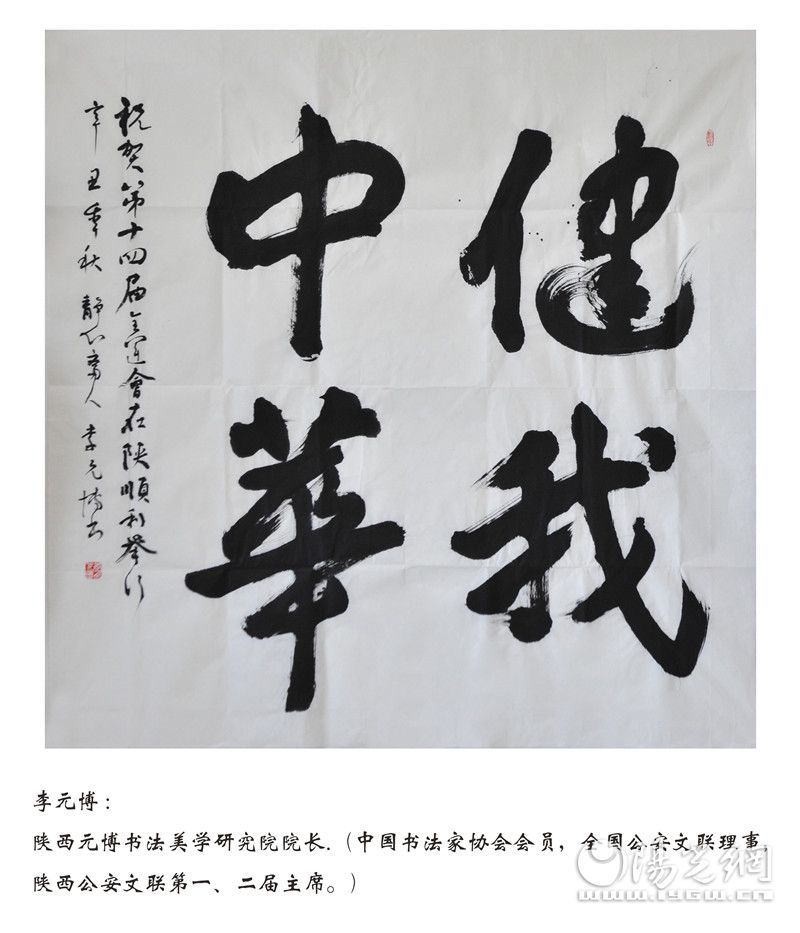 健我
中華
祝贺第十四届全运會在陕順利举行
辛丑季秋 静心斋人 李元博书
李元博：
陕西元博书法美学研究院院长.（中国书法家协会会员，全国公安文联理事，
陕西公安文联第一、二届主席。）
湯艺網
www.iygw.cn